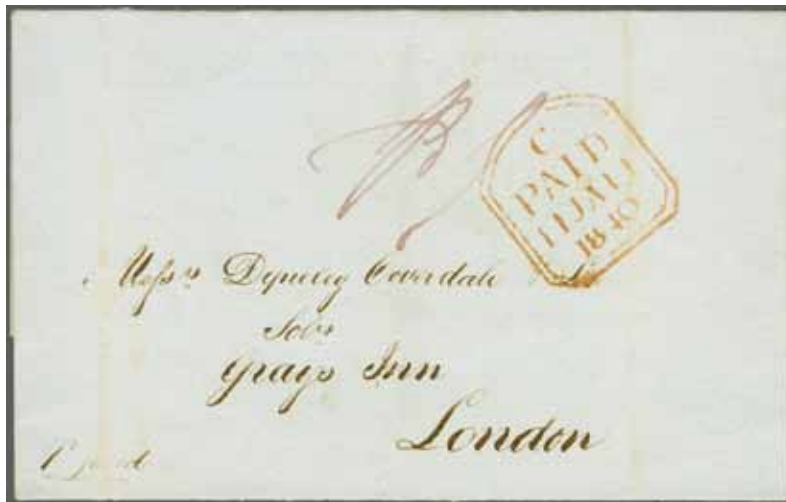 C
PAID
11 JA 11
1840
Messrs Dyneley Coverdale
Solrs
Grays Inn
London
Paid